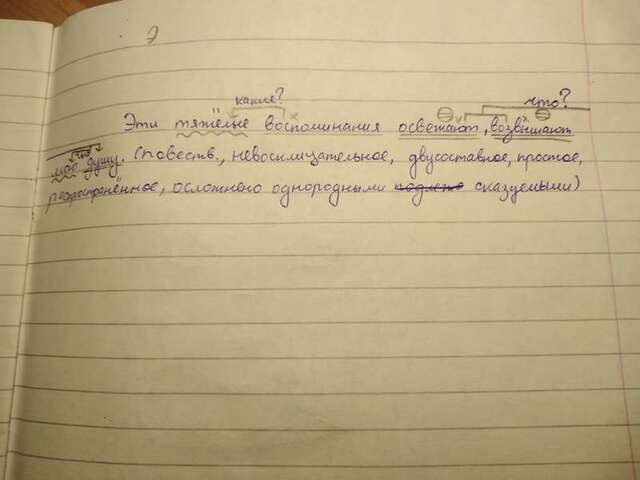 Э
какие? что?
Эти тяжёлые воспоминания освежают, возвышают
мою душу. (повеств., невосклицательное, двусоставное, простое,
распространённое, осложнено однородными сказуемыми)